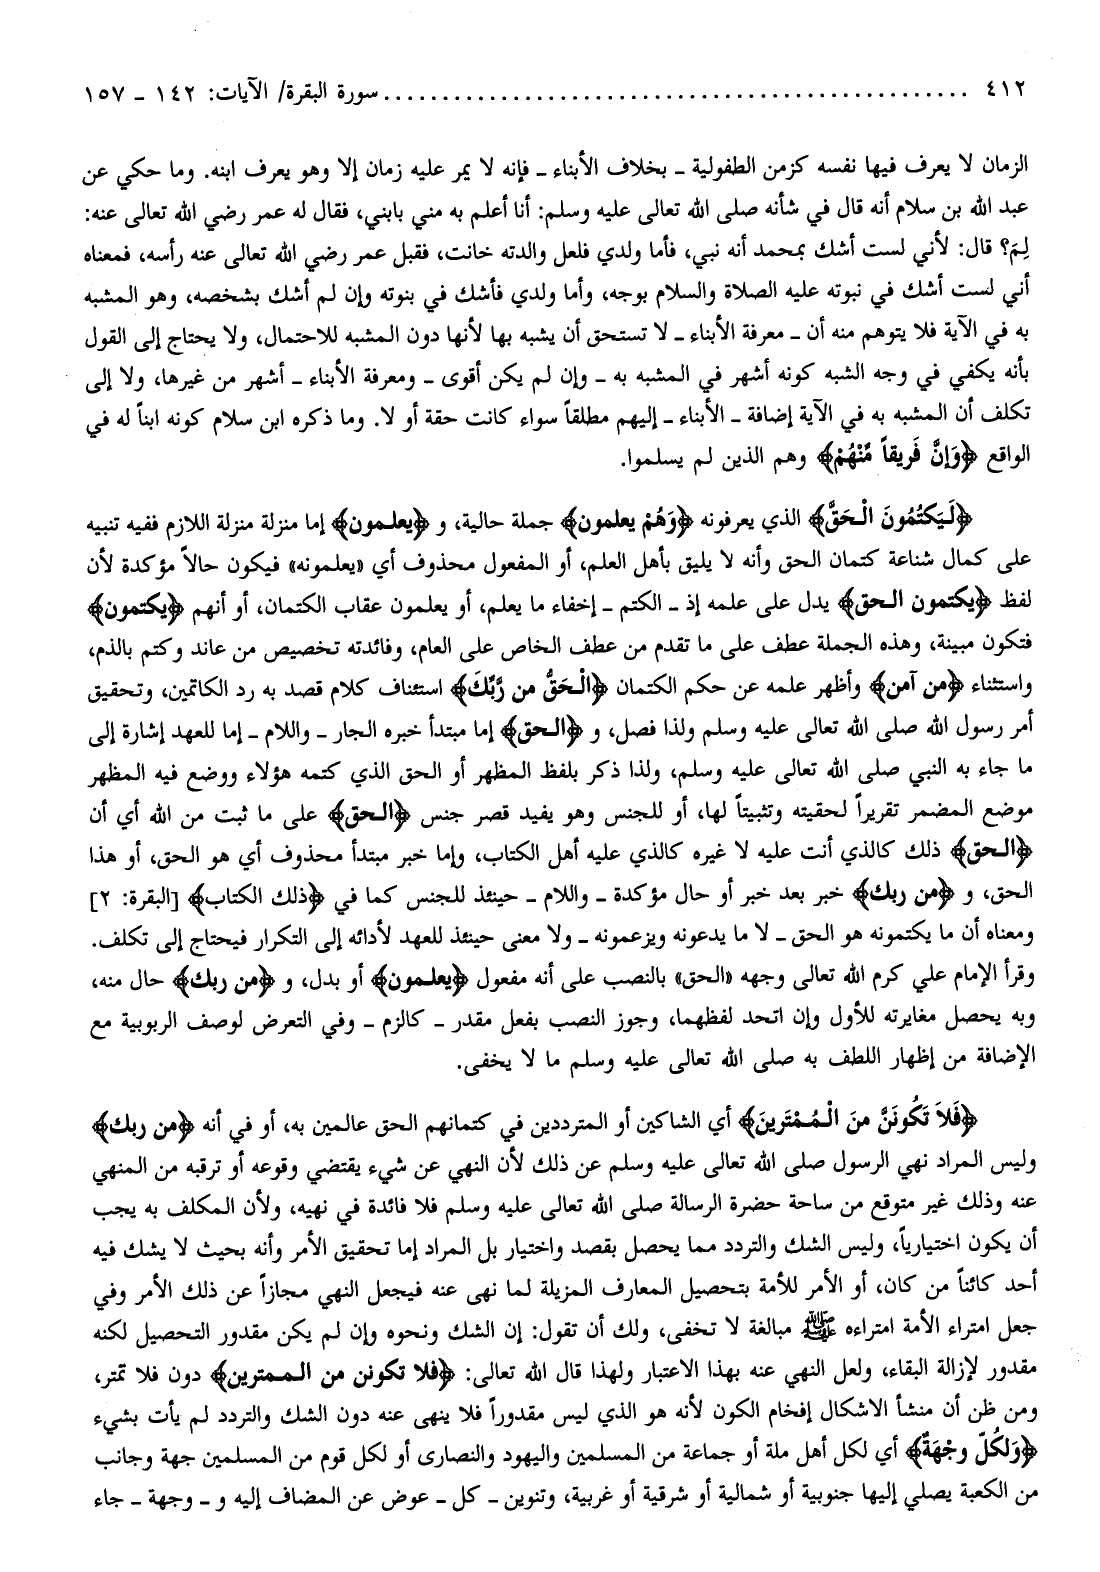 ٤١٢ ................................................ سورة البقرة/ الآيات: ١٤٢ ـ ١٥٧
الزمان لا يعرف فيها نفسه كزمن الطفولية ـ بخلاف الأبناء ـ فإنه لا يمر عليه زمان إلا وهو يعرف ابنه. وما حكي عن
عبد الله بن سلام أنه قال في شأنه صلى الله تعالى عليه وسلم: أنا أعلم به مني بابني، فقال له عمر رضي الله تعالى عنه:
لِمَ؟ قال: لأني لست أشك بمحمد أنه نبي، فأما ولدي فلعل والدته خانت، فقبل عمر رضي الله تعالى عنه رأسه، فمعناه
أني لست أشك في نبوته عليه الصلاة والسلام بوجه، وأما ولدي فأشك في بنوته وإن لم أشك بشخصه، وهو المشبه
به في الآية فلا يتوهم منه أن ـ معرفة الأبناء ـ لا تستحق أن يشبه بها لأنها دون المشبه للاحتمال، ولا يحتاج إلى القول
بأنه يكفي في وجه الشبه كونه أشهر في المشبه به ـ وإن لم يكن أقوى ـ ومعرفة الأبناء ـ أشهر من غيرها، ولا إلى
تكلف أن المشبه به في الآية إضافة ـ الأبناء ـ إليهم مطلقاً سواء كانت حقة أو لا. وما ذكره ابن سلام كونه ابناً له في
الواقع ﴿وَإِنَّ فَرِيقاً مِّنْهُمْ﴾ وهم الذين لم يسلموا.
﴿لَيَكْتُمُونَ الْحَقَّ﴾ الذي يعرفونه ﴿وَهُمْ يعلمون﴾ جملة حالية، و ﴿يعلمون﴾ إما منزلة منزلة اللازم ففيه تنبيه
على كمال شناعة كتمان الحق وأنه لا يليق بأهل العلم، أو المفعول محذوف أي «يعلمونه» فيكون حالاً مؤكدة لأن
لفظ ﴿يكتمون الحق﴾ يدل على علمه إذ ـ الكتم ـ إخفاء ما يعلم، أو يعلمون عقاب الكتمان، أو أنهم ﴿يكتمون﴾
فتكون مبينة، وهذه الجملة عطف على ما تقدم من عطف الخاص على العام، وفائدته تخصيص من عاند وكتم بالذم،
واستثناء ﴿من آمن﴾ وأظهر علمه عن حكم الكتمان ﴿الْحَقُّ من رَّبِّكَ﴾ استئناف كلام قصد به رد الكاتمين، وتحقيق
أمر رسول الله صلى الله تعالى عليه وسلم ولذا فصل، و ﴿الحق﴾ إما مبتدأ خبره الجار ـ واللام ـ إما للعهد إشارة إلى
ما جاء به النبي صلى الله تعالى عليه وسلم، ولذا ذكر بلفظ المظهر أو الحق الذي كتمه هؤلاء ووضع فيه المظهر
موضع المضمر تقريراً لحقيته وتثبيتاً لها، أو للجنس وهو يفيد قصر جنس ﴿الحق﴾ على ما ثبت من الله أي أن
﴿الحق﴾ ذلك كالذي أنت عليه لا غيره كالذي عليه أهل الكتاب، وإما خبر مبتدأ محذوف أي هو الحق، أو هذا
الحق، و ﴿من ربك﴾ خبر بعد خبر أو حال مؤكدة ـ واللام ـ حينئذ للجنس كما في ﴿ذلك الكتاب﴾ [البقرة: ٢]
ومعناه أن ما يكتمونه هو الحق ـ لا ما يدعونه ويزعمونه ـ ولا معنى حينئذ للعهد لأدائه إلى التكرار فيحتاج إلى تكلف.
وقرأ الإمام علي كرم الله تعالى وجهه «الحق» بالنصب على أنه مفعول ﴿يعلمون﴾ أو بدل، و ﴿من ربك﴾ حال منه،
وبه يحصل مغايرته للأول وإن اتحد لفظهما، وجوز النصب بفعل مقدر ـ كالزم ـ وفي التعرض لوصف الربوبية مع
الإضافة من إظهار اللطف به صلى الله تعالى عليه وسلم ما لا يخفى.
﴿فَلاَ تَكُونَنَّ منَ الْمُمْتَرِينَ﴾ أي الشاكين أو المترددين في كتمانهم الحق عالمين به، أو في أنه ﴿من ربك﴾
وليس المراد نهي الرسول صلى الله تعالى عليه وسلم عن ذلك لأن النهي عن شيء يقتضي وقوعه أو ترقبه من المنهي
عنه وذلك غير متوقع من ساحة حضرة الرسالة صلى الله تعالى عليه وسلم فلا فائدة في نهيه، ولأن المكلف به يجب
أن يكون اختيارياً، وليس الشك والتردد مما يحصل بقصد واختيار بل المراد إما تحقيق الأمر وأنه بحيث لا يشك فيه
أحد كائناً من كان، أو الأمر للأمة بتحصيل المعارف المزيلة لما نهى عنه فيجعل النهي مجازاً عن ذلك الأمر وفي
جعل امتراء الأمة امتراءه ﷺ مبالغة لا تخفى، ولك أن تقول: إن الشك ونحوه وإن لم يكن مقدور التحصيل لكنه
مقدور لإزالة البقاء، ولعل النهي عنه بهذا الاعتبار ولهذا قال الله تعالى: ﴿فلا تكونن من الممترين﴾ دون فلا تمتر،
ومن ظن أن منشأ الاشكال إفخام الكون لأنه هو الذي ليس مقدوراً فلا ينهى عنه دون الشك والتردد لم يأت بشيء
﴿وَلكُلّ وجْهَةٌ﴾ أي لكل أهل ملة أو جماعة من المسلمين واليهود والنصارى أو لكل قوم من المسلمين جهة وجانب
من الكعبة يصلي إليها جنوبية أو شمالية أو شرقية أو غربية، وتنوين ـ كل ـ عوض عن المضاف إليه و ـ وجهة ـ جاء